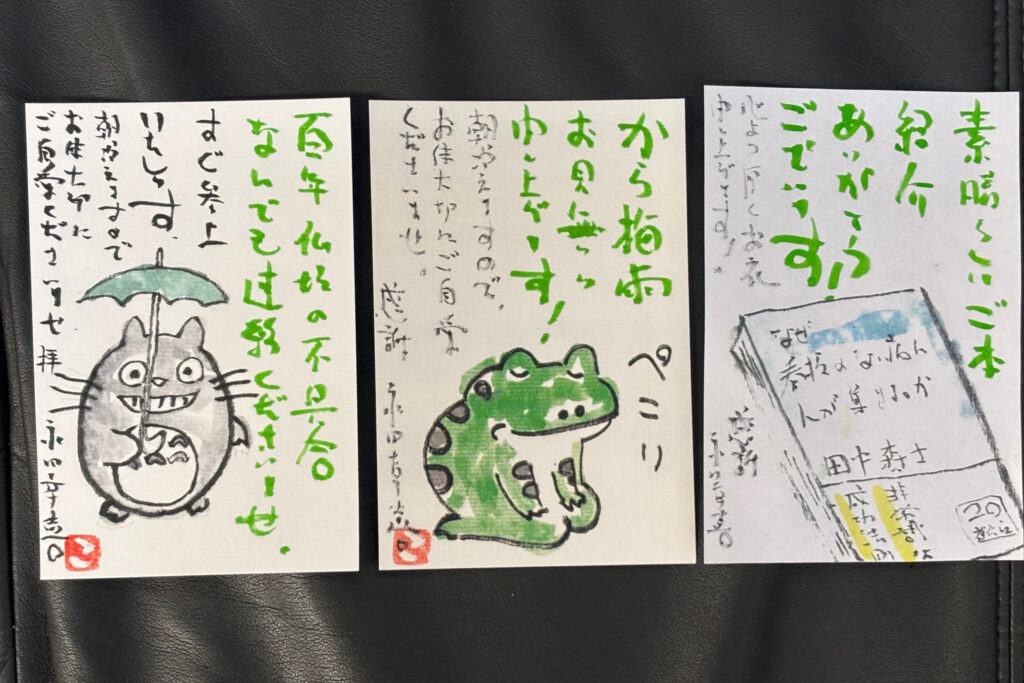 素晴らしいご本
紹介
ありがとう
ございます!!
心より厚くお礼
申し上げます。
感謝
なぜ
看板のない店に
人が集まるのか
田中森士
非常識な
成功法則
20
から梅雨
お見舞い
申し上げます!
朝冷えますので、
お体大切にご自愛
くださいませ。
感謝
ぺこり
百年仏壇の不具合
なんでも連絡くださいませ。
すぐ参上
いたします。
朝冷えますので
お体大切に
ご自愛くださいませ 拝